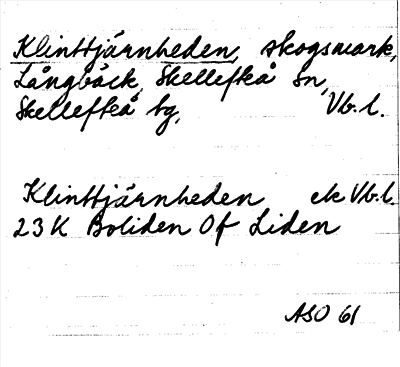 Klinttjärnheden, skogsmark,
Långbäck, Skellefteå sn,
Skellefteå tg, Vb.l.
Klinttjärnheden ek Vb.l.
23K Boliden 0f Liden
ASO 61